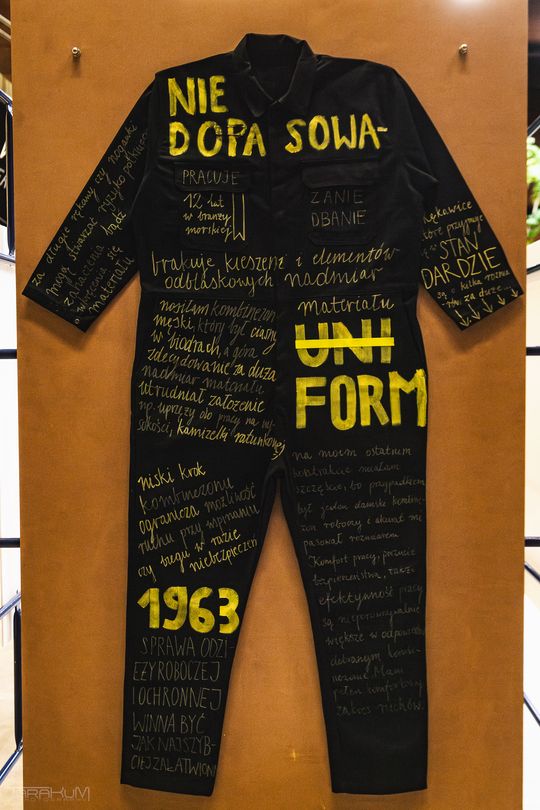 NIE
DOPASOWA-
PRACUJĘ
12 lat
w branży
morskiej
ZANIE
DBANIE
za długie rękawy czy nogawki
mogą stwarzać ryzyko
zahaczenia bądź
wkręcenia się
materiału
rękawice
które przyjmuje
się w
STAN
DARDZIE
są o kilka rozmia-
rów za duże
brakuje kieszeni i elementów
odblaskowych nadmiar
materiału
nosiłam kombinezon
męski, który był ciasny
w biodrach, a góra
zdecydowanie za duża
nadmiar materiału
utrudniał założenie
np. uprzęży do pracy na wy-
sokości, kamizelki ratunkowej
UNI
FORM
niski krok
kombinezonu
ogranicza możliwość
ruchu przy wspinaniu
czy biegu w razie
niebezpieczeń
1963
SPRAWA ODZI-
EŻY ROBOCZEJ
I OCHRONNEJ
WINNA BYĆ
JAK NAJSZYB-
CIEJ ZAŁATWIONA
na moim ostatnim
kontrakcie miałam
szczęście, bo przypadkiem
był jeden damski kombine-
zon roboczy i akurat mi
pasował rozmiarem
Komfort pracy, poczucie
bezpieczeństwa, także
efektywność pracy
są nieporównywalnie
większe w odpowiednio
dobranym kombi-
nezonie. Mam
pełen komfortowy
zakres ruchów.
TARAKUM